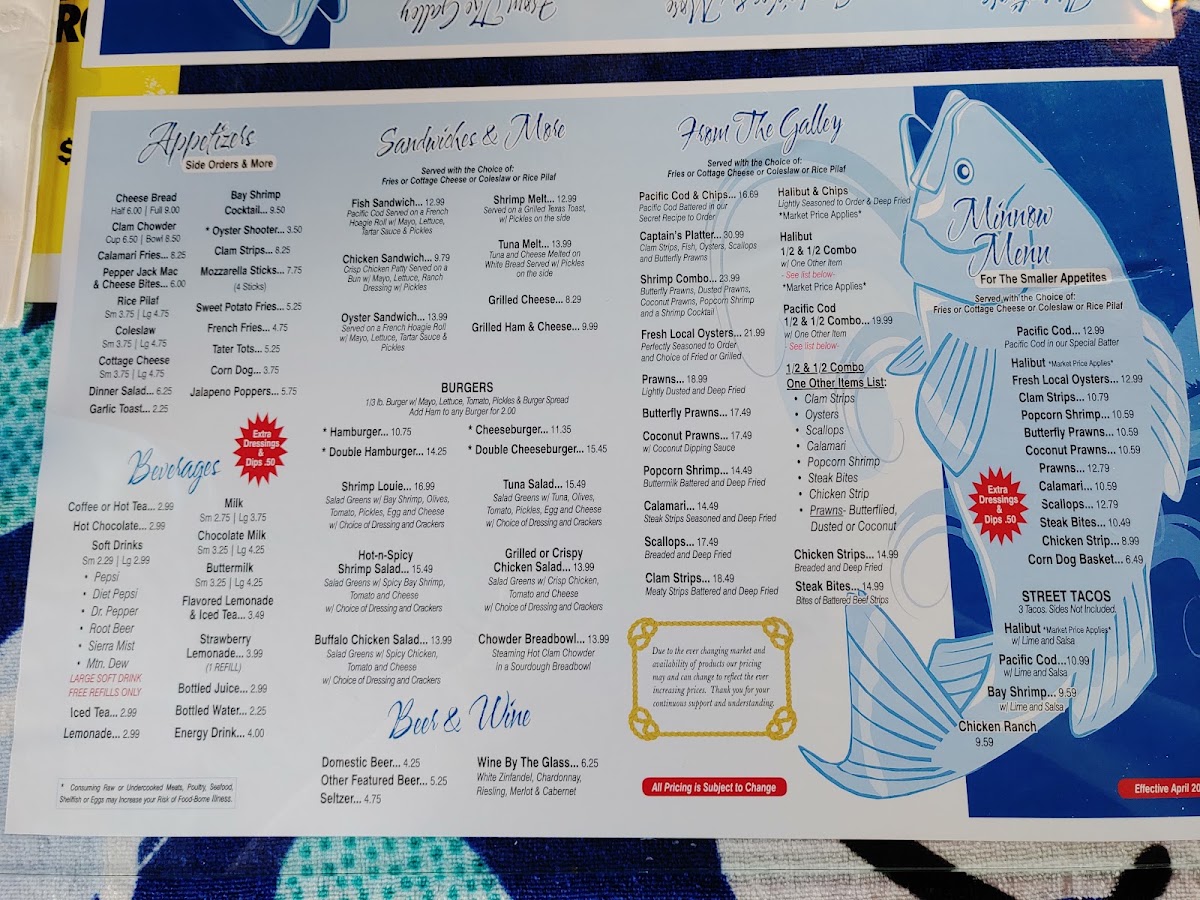 From The Galley
Sandwiches & More
Appetizers
$
Appetizers
Side Orders & More
Cheese Bread
Half 6.00 | Full 9.00
Clam Chowder
Cup 6.50 | Bowl 8.50
Calamari Fries... 8.25
Pepper Jack Mac
& Cheese Bites... 6.00
Rice Pilaf
Sm 3.75 | Lg 4.75
Coleslaw
Sm 3.75 | Lg 4.75
Cottage Cheese
Sm 3.75 | Lg 4.75
Dinner Salad... 6.25
Garlic Toast... 2.25
Bay Shrimp
Cocktail... 9.50
* Oyster Shooter... 3.50
Clam Strips... 8.25
Mozzarella Sticks... 7.75
(4 Sticks)
Sweet Potato Fries... 5.25
French Fries... 4.75
Tater Tots... 5.25
Corn Dog... 3.75
Jalapeno Poppers... 5.75
Extra
Dressings
&
Dips .50
Beverages
Coffee or Hot Tea... 2.99
Hot Chocolate... 2.99
Soft Drinks
Sm 2.29 | Lg 2.99
• Pepsi
• Diet Pepsi
• Dr. Pepper
• Root Beer
• Sierra Mist
• Mtn. Dew
LARGE SOFT DRINK
FREE REFILLS ONLY
Iced Tea... 2.99
Lemonade... 2.99
Milk
Sm 2.75 | Lg 3.75
Chocolate Milk
Sm 3.25 | Lg 4.25
Buttermilk
Sm 3.25 | Lg 4.25
Flavored Lemonade
& Iced Tea... 3.49
Strawberry
Lemonade... 3.99
(1 REFILL)
Bottled Juice... 2.99
Bottled Water... 2.25
Energy Drink... 4.00
* Consuming Raw or Undercooked Meats, Poultry, Seafood,
Shellfish or Eggs may Increase your Risk of Food-Borne Illness.
Sandwiches & More
Served with the Choice of:
Fries or Cottage Cheese or Coleslaw or Rice Pilaf
Fish Sandwich... 12.99
Pacific Cod Served on a French
Hoagie Roll w/ Mayo, Lettuce,
Tartar Sauce & Pickles
Chicken Sandwich... 9.79
Crisp Chicken Patty Served on a
Bun w/ Mayo, Lettuce, Ranch
Dressing w/ Pickles
Oyster Sandwich... 13.99
Served on a French Hoagie Roll
w/ Mayo, Lettuce, Tartar Sauce &
Pickles
Shrimp Melt... 12.99
Served on a Grilled Texas Toast,
w/ Pickles on the side
Tuna Melt... 13.99
Tuna and Cheese Melted on
White Bread Served w/ Pickles
on the side
Grilled Cheese... 8.29
Grilled Ham & Cheese... 9.99
BURGERS
1/3 lb. Burger w/ Mayo, Lettuce, Tomato, Pickles & Burger Spread
Add Ham to any Burger for 2.00
* Hamburger... 10.75
* Double Hamburger... 14.25
* Cheeseburger... 11.35
* Double Cheeseburger... 15.45
Shrimp Louie... 16.99
Salad Greens w/ Bay Shrimp, Olives,
Tomato, Pickles, Egg and Cheese
w/ Choice of Dressing and Crackers
Tuna Salad... 15.49
Salad Greens w/ Tuna, Olives,
Tomato, Pickles, Egg and Cheese
w/ Choice of Dressing and Crackers
Hot-n-Spicy
Shrimp Salad... 15.49
Salad Greens w/ Spicy Bay Shrimp,
Tomato and Cheese
w/ Choice of Dressing and Crackers
Grilled or Crispy
Chicken Salad... 13.99
Salad Greens w/ Crisp Chicken,
Tomato and Cheese
w/ Choice of Dressing and Crackers
Buffalo Chicken Salad... 13.99
Salad Greens w/ Spicy Chicken,
Tomato and Cheese
w/ Choice of Dressing and Crackers
Chowder Breadbowl... 13.99
Steaming Hot Clam Chowder
in a Sourdough Breadbowl
Beer & Wine
Domestic Beer... 4.25
Other Featured Beer... 5.25
Seltzer... 4.75
Wine By The Glass... 6.25
White Zinfandel, Chardonnay,
Riesling, Merlot & Cabernet
From The Galley
Served with the Choice of:
Fries or Cottage Cheese or Coleslaw or Rice Pilaf
Pacific Cod & Chips... 16.69
Pacific Cod Battered in our
Secret Recipe to Order
Captain's Platter... 30.99
Clam Strips, Fish, Oysters, Scallops
and Butterfly Prawns
Shrimp Combo... 23.99
Butterfly Prawns, Dusted Prawns,
Coconut Prawns, Popcorn Shrimp
and a Shrimp Cocktail
Fresh Local Oysters... 21.99
Perfectly Seasoned to Order
and Choice of Fried or Grilled
Prawns... 18.99
Lightly Dusted and Deep Fried
Butterfly Prawns... 17.49
Coconut Prawns... 17.49
w/ Coconut Dipping Sauce
Popcorn Shrimp... 14.49
Buttermilk Battered and Deep Fried
Calamari... 14.49
Steak Strips Seasoned and Deep Fried
Scallops... 17.49
Breaded and Deep Fried
Clam Strips... 18.49
Meaty Strips Battered and Deep Fried
Halibut & Chips
Lightly Seasoned to Order & Deep Fried
*Market Price Applies*
Halibut
1/2 & 1/2 Combo
w/ One Other Item
- See list below-
*Market Price Applies*
Pacific Cod
1/2 & 1/2 Combo... 19.99
w/ One Other Item
- See list below-
1/2 & 1/2 Combo
One Other Items List:
• Clam Strips
• Oysters
• Scallops
• Calamari
• Popcorn Shrimp
• Steak Bites
• Chicken Strip
• Prawns- Butterflied,
Dusted or Coconut
Chicken Strips... 14.99
Breaded and Deep Fried
Steak Bites... 14.99
Bites of Battered Beef Strips
Due to the ever changing market and
availability of products our pricing
may and can change to reflect the ever
increasing prices. Thank you for your
continuous support and understanding.
All Pricing is Subject to Change
Minnow
Menu
For The Smaller Appetites
Served with the Choice of:
Fries or Cottage Cheese or Coleslaw or Rice Pilaf
Pacific Cod... 12.99
Pacific Cod in our Special Batter
Halibut *Market Price Applies*
Fresh Local Oysters... 12.99
Clam Strips... 10.79
Popcorn Shrimp... 10.59
Butterfly Prawns... 10.59
Coconut Prawns... 10.59
Prawns... 12.79
Calamari... 10.59
Scallops... 12.79
Steak Bites... 10.49
Chicken Strip... 8.99
Corn Dog Basket... 6.49
Extra
Dressings
&
Dips .50
STREET TACOS
3 Tacos. Sides Not Included.
Halibut *Market Price Applies*
w/ Lime and Salsa
Pacific Cod...10.99
w/ Lime and Salsa
Bay Shrimp... 9.59
w/ Lime and Salsa
Chicken Ranch
9.59
Effective April 20